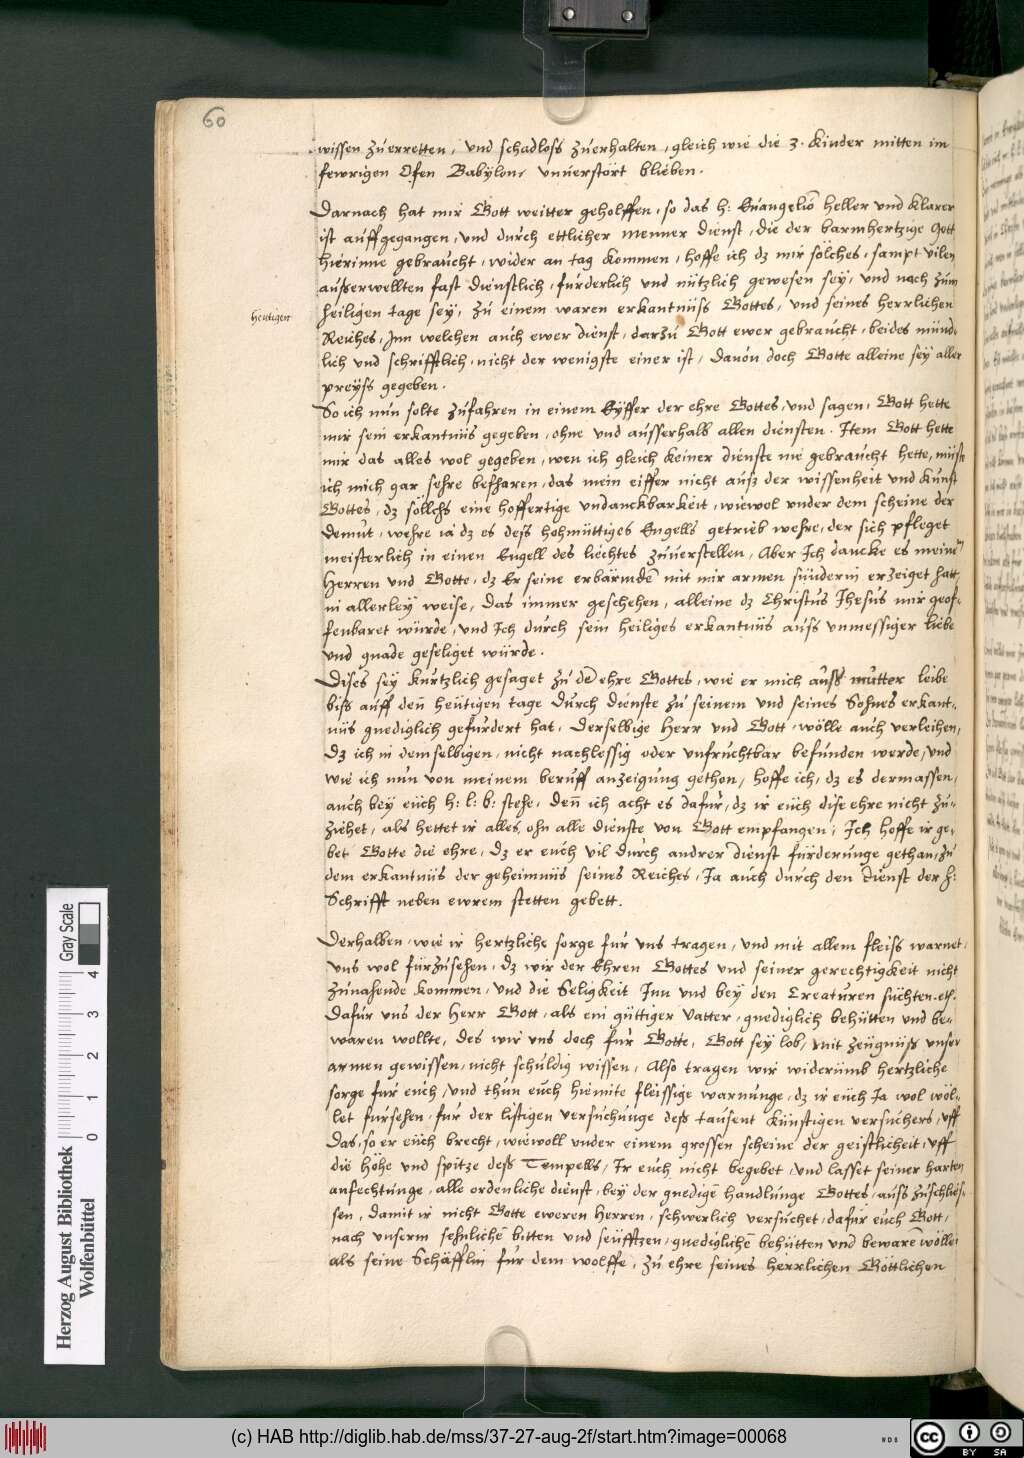 60
wissen zuerretten, und schadloss zuerhalten, gleich wie die 3. Kinder mitten im
fewrigen Ofen Babylons unuerstört blieben.
Darnach hat mir Gott weitter geholffen, so das h: Euangeliō heller und klarer
ist auffgegangen, und durch ettlicher menner dienst, die der barmhertzige Gott
hierinne gebraucht, wider an tag kommen, hoffe ich dz mir sölches, sampt vilen
außerwellten fast dienstlich, fürderlich und nützlich gewesen sey, und noch zum
heutigen
heiligen tage sey, zu einem waren erkantnüss Gottes, und seines herrlichen
Reiches, Inn welchen auch ewer dienst, darzu Gott ewer gebraucht, beides münd-
lich und schrifftlich, nicht der wenigste einer ist, dauon doch Gotte alleine sey aller
preyss gegeben.
So ich nun solte zufahren in einem Eyffer der ehre Gottes, und sagen, Gott hette
mir sein erkantnüs gegeben, ohne und ausserhalb allen diensten. Item Gott hette
mir das alles wol gegeben, wen ich gleich keiner dienste nie gebraucht hette, müste
ich mich gar sehre befharen, das mein eiffer nicht auß der wissenheit und kunst
Gottes, dz söllchs eine hoffertige undanckbarkeit, wiewol under dem scheine der
demut, wehre ia dz es deß hohmüttiges Engells getrieb wehre, der sich pfleget
meisterlich in einen Engell des liechtes zuuerstellen, Aber Ich dancke es meinē
Herren und Gotte, dz Er seine erbärmdē mit mir armen sünderin erzeiget hatt,
in allerley weise, Das immer geschehen, alleine dz Christus Jhesus mir geof-
fenbaret würde, und Ich durch sein heiliges erkantnüs auss unmessiger liebe
und gnade geseliget würde.
Dises sey kurtzlich gesaget zu dē ehre Gottes, wie er mich auss mutter leibe
biß auff den heütigen tage durch dienste zu seinem und seines Sohnes erkant-
nüs gnediglich gefürdert hat, Derselbige Herr und Gott, wölle auch verleihen,
Dz ich in demselbigen, nicht nachlessig oder unfruchtbar befunden werde, und
wie ich nun von meinem beruff anzeigung gethon, hoffe ich, dz es dermassen,
auch bey euch h: l: b: stehe, denn ich acht es dafür, dz ir euch dise ehre nicht zu-
ziehet, als hettet ir alles ohn alle dienste von Gott empfangen, Ich hoffe ir ge-
bet Gotte die ehre, dz er euch vil durch andrer dienst fürderunge gethan, zu
dem erkantnüs der geheimnüs seines Reiches, Ja auch durch den dienst der h:
Schrifft neben ewrem stetten gebett.
Derhalben, wie ir hertzliche sorge für uns tragen, und mit allem fleiss warnet,
uns wol fürzusehen, dz wir der Ehren Gottes und seiner gerechtigkeit nicht
zunahende kommen, und die Seligkeit Inn und bey den Creaturen süchten. etc.
Dafür uns der Herr Gott, als ein güttiger Vatter, gnediglich behütten und be-
waren wollte, des wir uns doch für Gotte, Gott sey lob, mit zeügnüß unser
armen gewissen, nicht schuldig wissen, Also tragen wir widerumb hertzliche
sorge fur euch, und thun euch hiemite fleissige warnunge, dz ir euch Ja wol wöl-
let fürsehen, für der listigen versuchunge deß tausent künstigen versuchers, uff
das, so er euch brecht, wiewoll under einem grossen scheine der geistlicheit, uff
die höhe und spitze deß Tempells, Ir euch nicht begebet, und lasset seiner harten
anfechtunge, alle ordenliche dienst, bey der gnedigē handlunge Gottes, auss zuschlies-
sen, damit ir nicht Gotte eweren Herren, schwerlich versuchet, dafür euch Gott,
nach unserm sehnlichē bitten und seüfftzen, gnediglichē behütten und bewarē wölle,
als seine Schäfflin für dem wolffe, zu ehre seines herrlichen Göttlichen
Herzog August Bibliothek
Wolfenbüttel
0 1 2 3 4
Gray Scale
(c) HAB http://diglib.hab.de/mss/37-27-aug-2f/start.htm?image=00068
WDB
cc BY SA